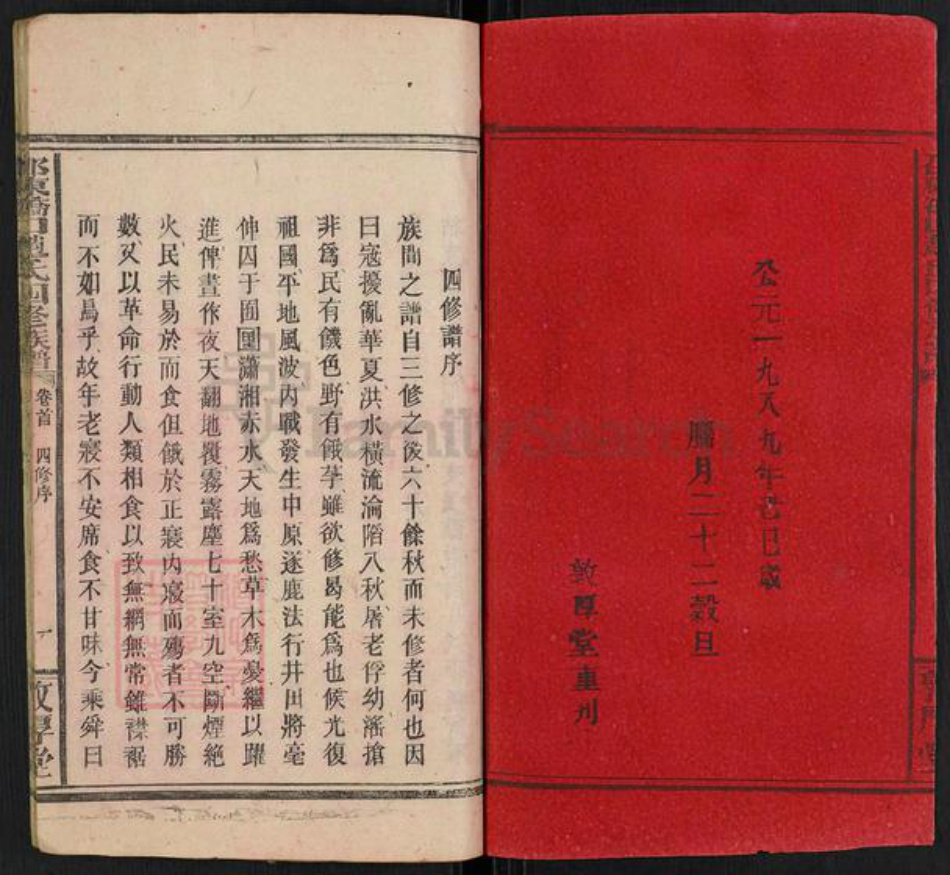 公元一九八九年己巳歲
臘月二十二穀旦
敦厚堂重刊
四修譜序
族間之譜自三修之後六十餘秋而未修者何也因
日寇擾亂華夏洪水橫流淪陷八秋居老俘幼滛搶
非爲民有饑色野有餓莩雖欲修曷能爲也候光復
祖國平地風波內戰發生中原逐鹿法行井田將毫
伸囚于囹圄瀟湘赤水天地爲愁草木爲憂繼以躍
進俾晝作夜天翻地覆霧露塵七十室九空斷煙絕
火民未易於而食但餓於正寢內寢而殤者不可勝
數又以革命行動人類相食以致無網無常雖襟裾
而不如舄乎故年老寢不安席食不甘味今乘舜日
邵東 趙氏四修族譜 卷首 四修序 敦厚堂
FamilySearch